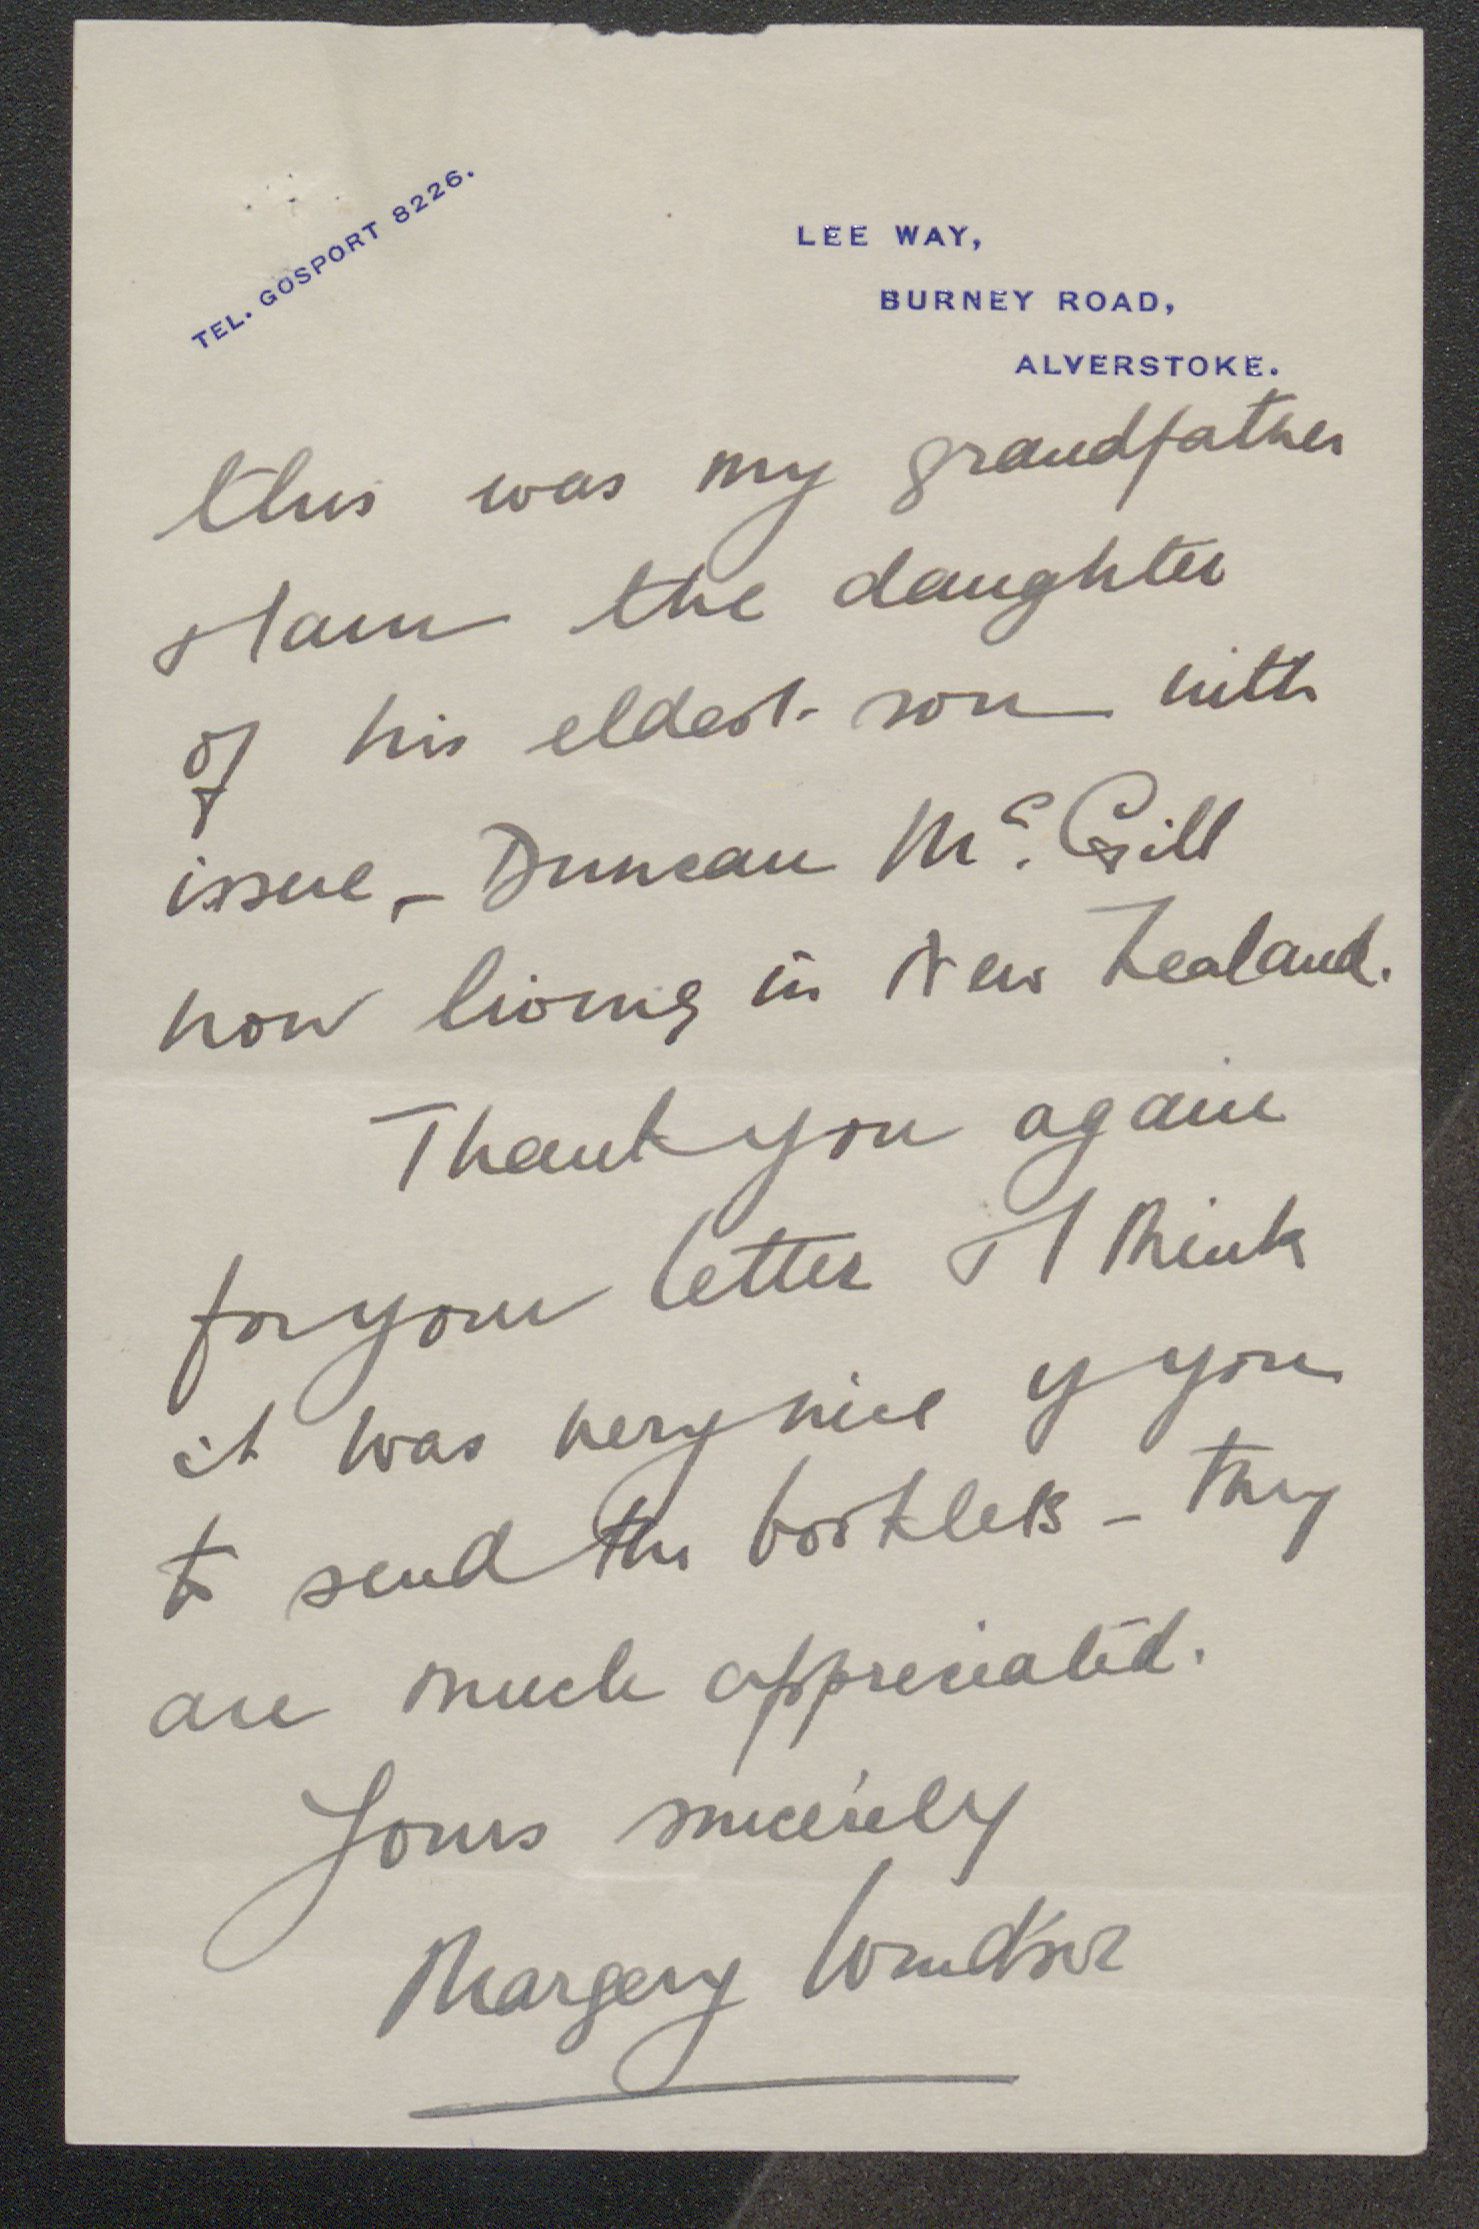 TEL. GOSPORT 8226.
LEE WAY,
BURNEY ROAD,
ALVERSTOKE.
this was my grandfather
& I am the daughter
of his eldest son with
issue, – Duncan Mc. Gill
now living in New Zealand.
Thank you again
for your letter & I think
it was very nice of you
to send the booklets – they
are much appreciated.
Yours sincerely
Margery Windsor